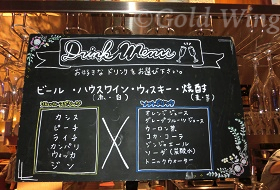 © Gold Wing
Drink Menu
お好きなドリンクをお選び下さい。
ビール・ハウスワイン・ウィスキー・焼酎
(赤・白)
(麦・芋)
カシス
ピーチ
ライチ
カンパリ
ウォッカ
ジン
×
オレンジジュース
グレープフルーツジュース
ウーロン茶
コカ・コーラ
ジンジャエール
ソーダ(炭酸水)
トニックウォーター